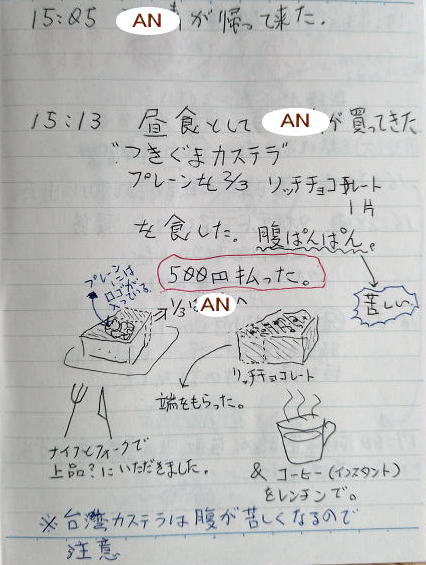 15:05 AN が帰って来た。
15:13 昼食として AN が買ってきた
"つきぐまカステラ"
プレーンを2/3 リッチチョコチョコレート
1片
を食した。腹ぱんぱん。
500円払った。
苦しい
プレーン
には
ロゴが
入っている。
1/3は AN へ
リッチチョコレート
端をもらった。
ナイフとフォークで
上品?にいただきました。
& コーヒー(インスタント)
をレンチンで。
※台湾カステラは腹が苦しくなるので
注意